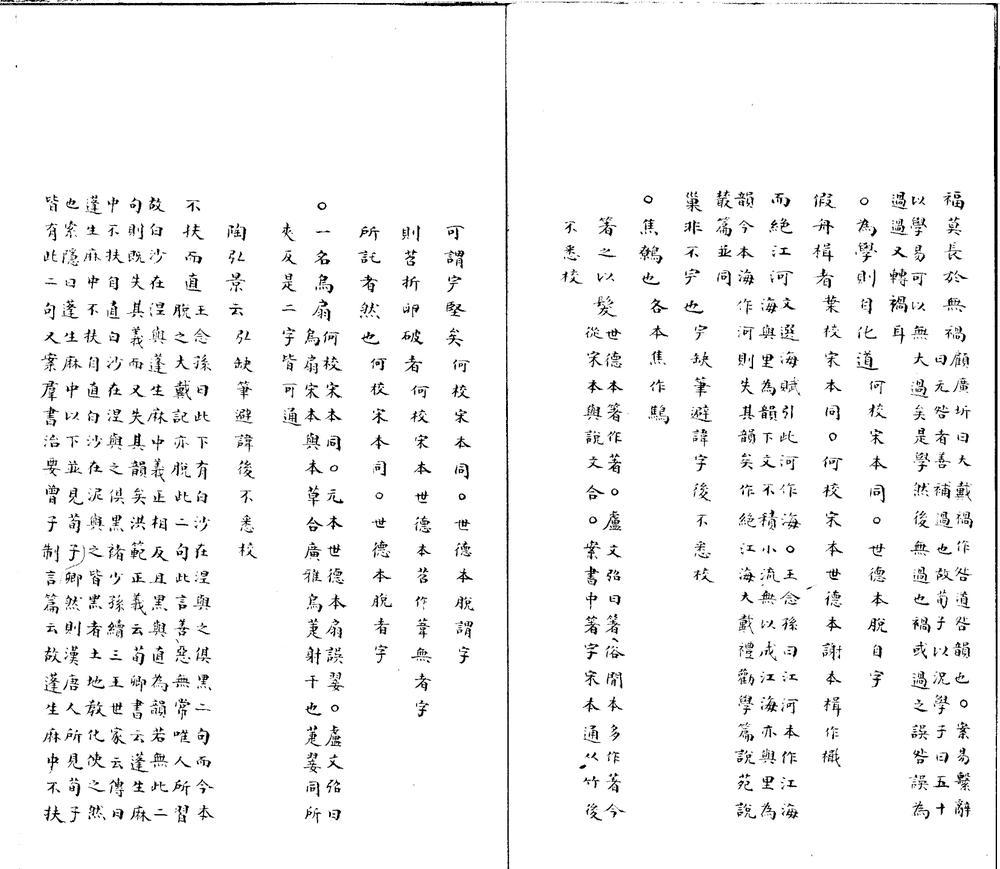 福莫長於無禍 顧廣圻曰大戴禍作咎道咎韻也○案易繫辭
曰无咎者善補過也故荀子以況學子曰五十
以學易可以無大過矣是學然後無過也禍或過之誤咎誤為
過過又轉禍耳
○為學則自化道 何校宋本同○世德本脫自字
假舟楫者 葉校宋本同○何校宋本世德本謝本楫作檝
而絕江河 文選海賦引此河作海○王念孫曰江河本作江海
海與里為韻下文不積小流無以成江海亦與里為
韻今本海作河則失其韻矣文作絕江海大戴禮勸學篇說苑說
叢篇並同
巢非不完也 完缺筆避諱字後不悉校
○焦鷯也 各本焦作鷦
箸之以髮 世德本箸作著○盧文弨曰箸俗閒本多作著今
從宋本與說文合○案書中箸字宋本通以竹後
不悉校
可謂完堅矣 何校宋本同○世德本脫謂字
則苕折卵破者 何校宋本世德本苕作葦無者字
所託者然也 何校宋本同○世德本脫者字
○一名烏扇 何校宋本同○元本世德本扇誤翣○盧文弨曰
烏扇宋本與本草合廣雅烏萐射干也萐翣同所
夾反是二字皆可通
陶弘景云 弘缺筆避諱後不悉校
不扶而直 王念孫曰此下有白沙在涅與之俱黑二句而今本
脫之大戴記亦脫此二句此言善惡無常唯人所習
故白沙在涅與蓬生麻中義正相反且黑與直為韻若無此二
句則既失其義而又失其韻矣洪範正義云荀卿書云蓬生麻
中不扶自直白沙在涅與之俱黑褚少孫續三王世家云傳曰
蓬生麻中不扶自直白沙在泥與之皆黑者土地敎化使之然
也索隱曰蓬生麻中以下並見荀子卿然則漢唐人所見荀子
皆有此二句又案羣書治要曾子制言篇云故蓬生麻中不扶